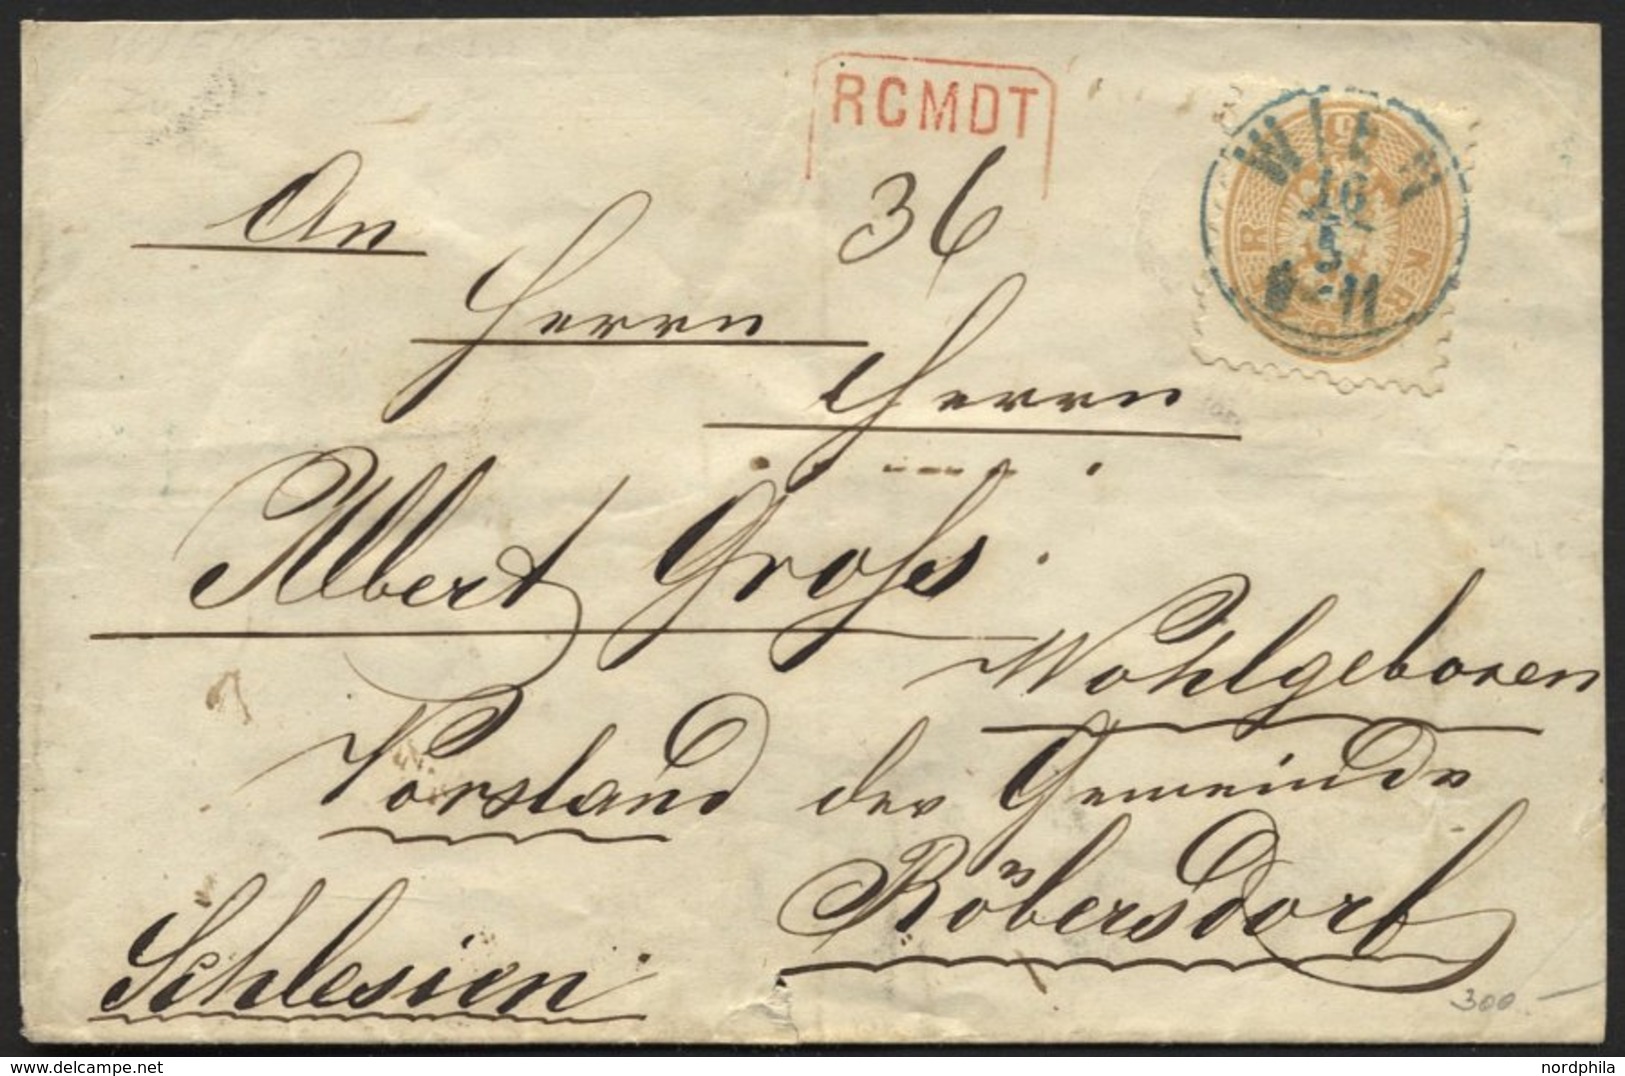 RCMDT
36
WIEN
16
5
-11
15
KR
An
Herrn
Herrn
Albert Groß
Wohlgeboren
Vorstand der Gemeinde
Röbersdorf
Schlesien.
300.-
nordphila